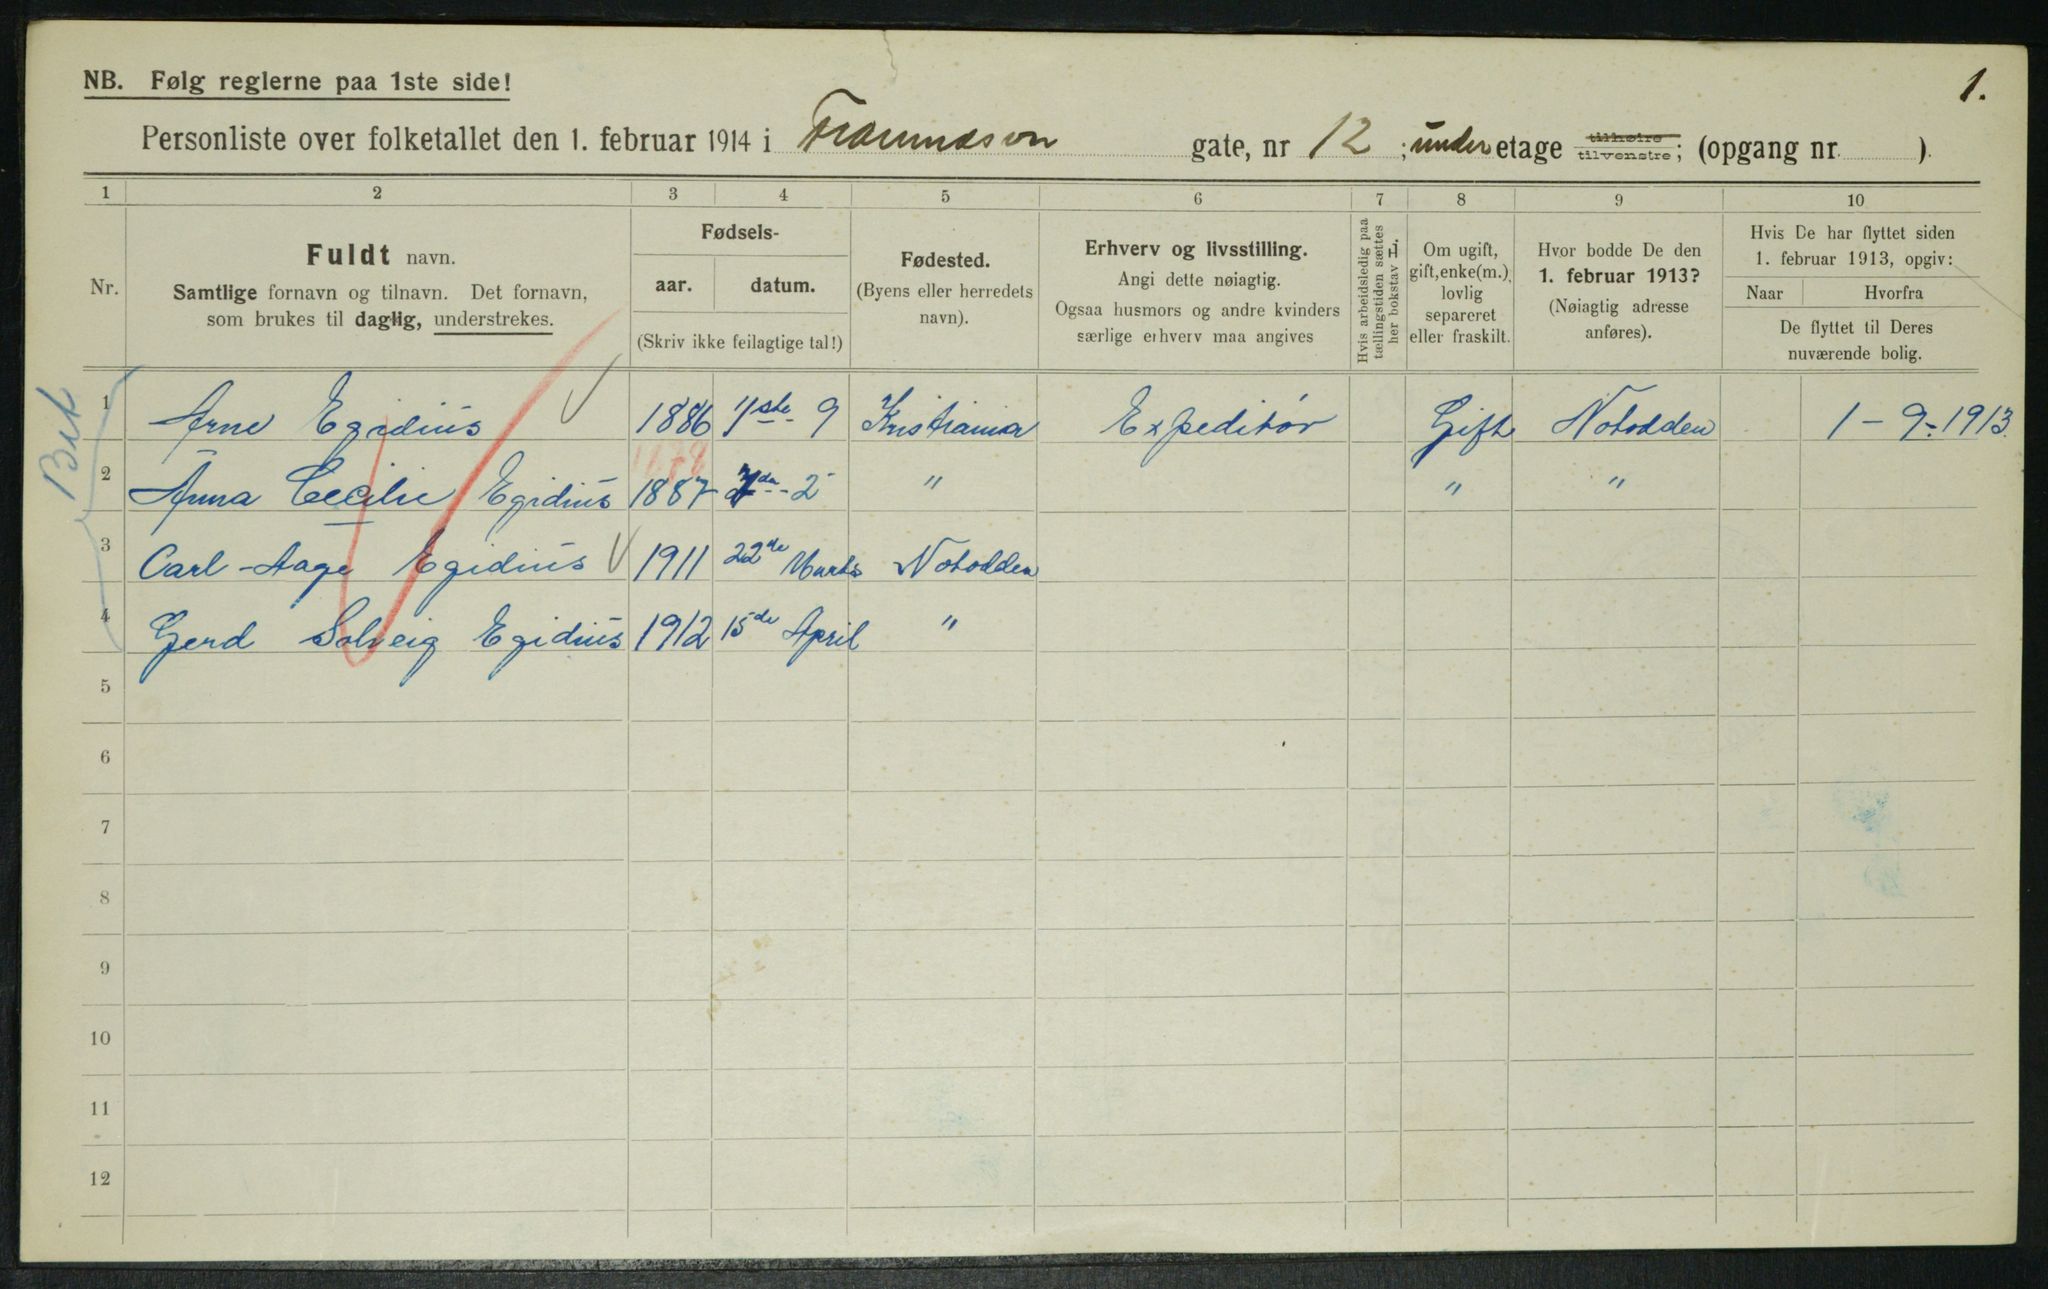 NB. Følg reglerne paa 1ste side!
1.
Personliste over folketallet den 1. februar 1914 i gate, nr 12 ; under etage tilhøire tilvenstre; (opgang nr ).
1 2 3 4 5 6 7 8 9 10
Nr.
Fuldt navn.
Samtlige fornavn og tilnavn. Det fornavn,
som brukes til daglig, understrekes.
Fødsels-
aar. datum.
(Skriv ikke feilagtige tal!)
Fødested.
(Byens eller herredets
navn).
Erhverv og livsstilling.
Angi dette nøiagtig.
Ogsaa husmors og andre kvinders
særlige erhverv maa angives
Hvis arbeidsledig paa
tællingstiden sættes
her bokstav L.
Om ugift,
gift, enke(m.),
lovlig
separeret
eller fraskilt.
Hvor bodde De den
1. februar 1913?
(Nøiagtig adresse
anføres).
Hvis De har flyttet siden
1. februar 1913, opgiv:
Naar Hvorfra
De flyttet til Deres
nuværende bolig.
1 Arne Egidius 1886 1ste 9 Kristiania Expeditør Gift Notodden 1-9-1913.
1878
2 Anna Cecilie Egidius 1887 2 " " "
3 Carl-Aage Egidius 1911 22de Marts Notodden
4 Gerd Solveig Egidius 1912 15de April "
5
6
7
8
9
10
11
12